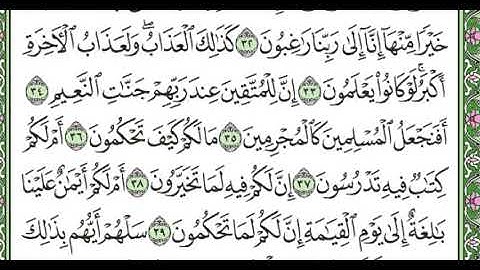 خَيْرًا مِّنْهَا إِنَّا إِلَىٰ رَبِّنَا رَاغِبُونَ ٣٢ كَذَٰلِكَ الْعَذَابُ ۖ وَلَعَذَابُ الْآخِرَةِ
أَكْبَرُ ۚ لَوْ كَانُوا يَعْلَمُونَ ٣٣ إِنَّ لِلْمُتَّقِينَ عِندَ رَبِّهِمْ جَنَّاتِ النَّعِيمِ ٣٤
أَفَنَجْعَلُ الْمُسْلِمِينَ كَالْمُجْرِمِينَ ٣٥ مَا لَكُمْ كَيْفَ تَحْكُمُونَ ٣٦ أَمْ لَكُمْ
كِتَابٌ فِيهِ تَدْرُسُونَ ٣٧ إِنَّ لَكُمْ فِيهِ لَمَا تَخَيَّرُونَ ٣٨ أَمْ لَكُمْ أَيْمَانٌ عَلَيْنَا
بَالِغَةٌ إِلَىٰ يَوْمِ الْقِيَامَةِ إِنَّ لَكُمْ لَمَا تَحْكُمُونَ ٣٩ سَلْهُمْ أَيُّهُم بِذَٰلِكَ